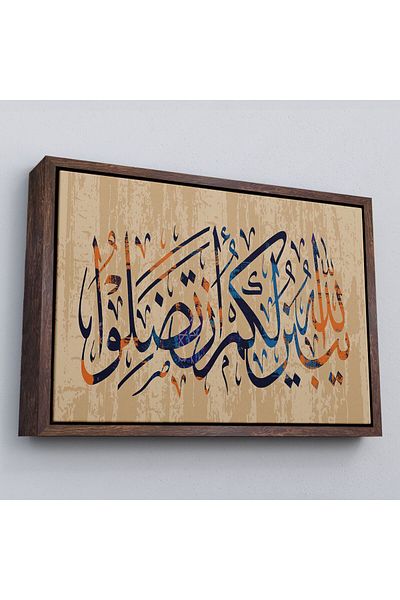 يبين الله لكم أن تضلوا